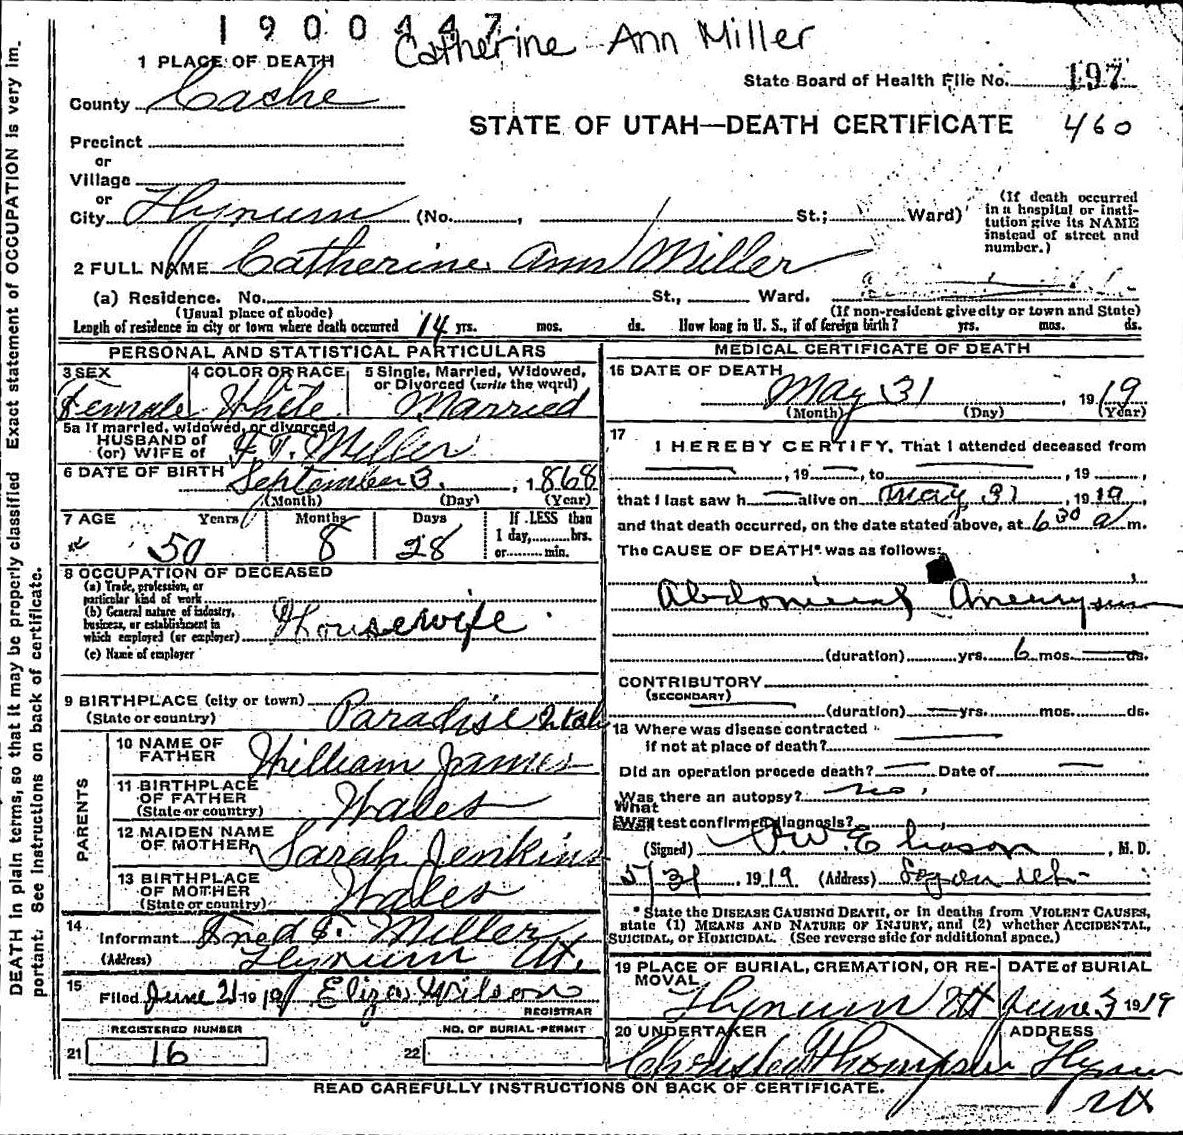 1900447
Catherine Ann Miller
1 PLACE OF DEATH
State Board of Health File No. 197
County Cache
STATE OF UTAH—DEATH CERTIFICATE 460
Precinct
or
Village
or
City Hyrum (No. , St.; Ward)
(If death occurred in a hospital or insti-
tution give its NAME instead of street and number.)
2 FULL NAME Catherine Ann Miller
(a) Residence. No. St., Ward.
(Usual place of abode) (If non-resident give city or town and State)
Length of residence in city or town where death occurred 14 yrs. mos. ds. How long in U. S., if of foreign birth? yrs. mos. ds.
PERSONAL AND STATISTICAL PARTICULARS
3 SEX 4 COLOR OR RACE 5 Single, Married, Widowed, or Divorced (write the word)
Female White Married
5a If married, widowed, or divorced
HUSBAND of
(or) WIFE of F. T. Miller
6 DATE OF BIRTH September 3, 1868
(Month) (Day) (Year)
7 AGE Years Months Days If LESS than
50 8 28 1 day, hrs.
or min.
8 OCCUPATION OF DECEASED
(a) Trade, profession, or
particular kind of work
(b) General nature of industry,
business, or establishment in
which employed (or employer) Housewife
(c) Name of employer
9 BIRTHPLACE (city or town)
(State or country) Paradise Utah
PARENTS
10 NAME OF
FATHER William James
11 BIRTHPLACE
OF FATHER
(State or country) Wales
12 MAIDEN NAME
OF MOTHER Sarah Jenkins
13 BIRTHPLACE
OF MOTHER
(State or country) Wales
14 Informant Fred T. Miller
(Address) Hyrum Ut.
15 Filed June 2 1919 Eliza Wilson
REGISTRAR
REGISTERED NUMBER NO. OF BURIAL PERMIT
21 16 22
MEDICAL CERTIFICATE OF DEATH
16 DATE OF DEATH
May 31 1919
(Month) (Day) (Year)
17 I HEREBY CERTIFY, That I attended deceased from
, 19 , to , 19 ,
that I last saw h alive on May 31 1919,
and that death occurred, on the date stated above, at 6 30 a m.
The CAUSE OF DEATH* was as follows:
Abdominal Aneurysm
(duration) yrs. 6 mos. ds.
CONTRIBUTORY
(SECONDARY)
(duration) yrs. mos. ds.
18 Where was disease contracted
if not at place of death?
Did an operation precede death? Date of
Was there an autopsy? no.
What
test confirmed diagnosis?
(Signed) O W. Eliason, M. D.
5/31, 1919 (Address) Logan Utah
* State the DISEASE CAUSING DEATH, or in deaths from VIOLENT CAUSES,
state (1) MEANS AND NATURE OF INJURY, and (2) whether ACCIDENTAL,
SUICIDAL, or HOMICIDAL. (See reverse side for additional space.)
19 PLACE OF BURIAL, CREMATION, OR RE-
MOVAL DATE of BURIAL
Hyrum Ut June 3 1919
20 UNDERTAKER ADDRESS
Thompson Hyrum
Ut
READ CAREFULLY INSTRUCTIONS ON BACK OF CERTIFICATE.
DEATH in plain terms, so that it may be properly classified Exact statement of OCCUPATION is very im-
portant. See instructions on back of certificate.